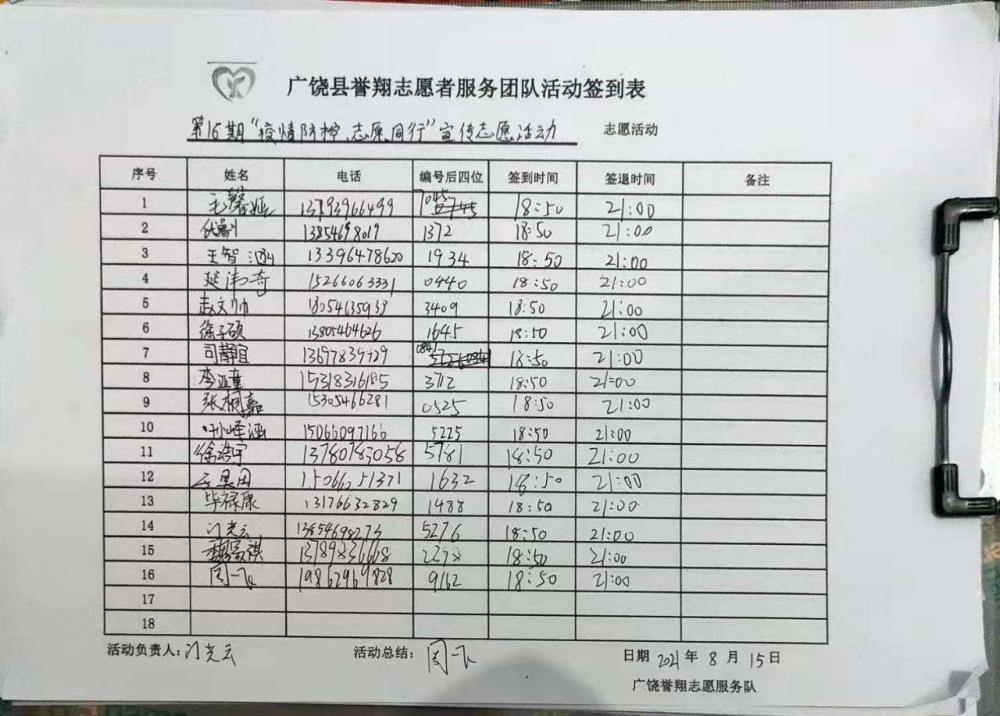 广饶县誉翔志愿者服务团队活动签到表
第16期"疫情防控、志愿同行"宣传志愿活动 志愿活动
序号 姓名 电话 编号后四位 签到时间 签退时间 备注
1 13793966499 7045 18:50 21:00
2 13854698019 1372 18:50 21:00
3 王智 13396478620 1934 18:50 21:00
4 延伟奇 15266063331 0440 18:50 21:00
5 赵文帅 3409 18:50 21:00
6 徐子硕 13805464626 1645 18:50 21:00
7 司静宜 0841 18:50 21:00
8 李亚童 15318316185 3712 18:50 21:00
9 张桐嘉 15305466281 0525 18:50 21:00
10 15066097166 5225 18:50 21:00
11 徐 宇 13780783058 5781 18:50 21:00
12 15066251371 1632 18:50 21:00
13 毕禄康 13176632829 1488 18:50 21:00
14 门光云 13854698273 5276 18:50 21:00
15 2378 18:50 21:00
16 周一飞 19862969828 9162 18:50 21:00
17
18
活动负责人:门光云 活动总结:周一飞 日期 2021 年 8 月 15 日
广饶誉翔志愿服务队